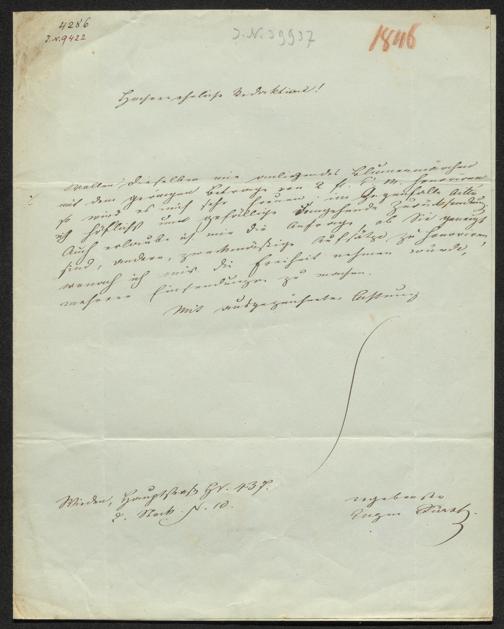 4286
J.N. 9422
J.N. 39937
1846
Hochverehrliche Redaktion!
Wollen dieselben mir anliegendes Blumenmärchen
mit dem geringen Betrage von 2 fl. C. M. honoriren
so wird es mich sehr freuen, im Gegenfalle bitte
ich höflichst um gefällige umgehende Zurücksendung
Auch erlaube ich mir die Anfrage, ob Sie geneigt
sind, andere, zweckmäßige Aufsätze zu honoriren,
wonach ich mir die Freiheit nehmen würde,
mehrere Einsendungen zu machen.
Mit ausgezeichneter Achtung
Wieden, Hauptstraße Nr. 437.
2. Stock. N. 10.
ergebenster